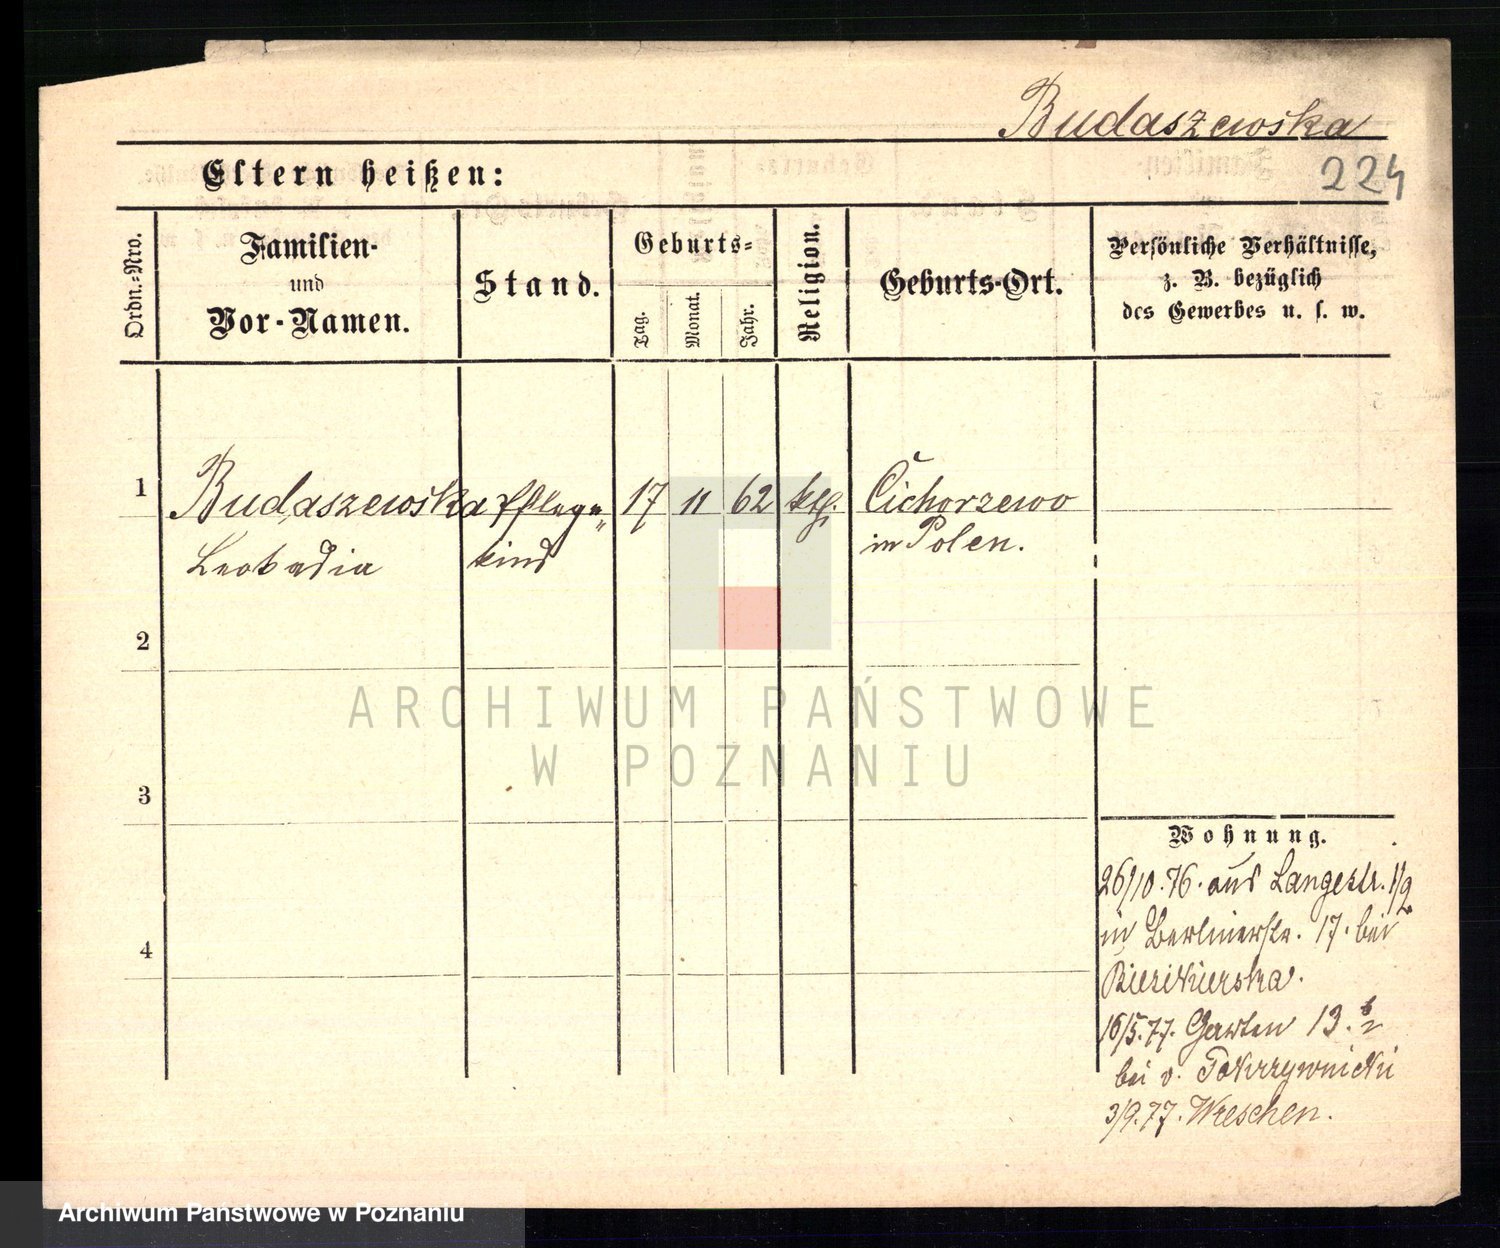 Budaszewska
Eltern heißen:
224
Ordn.=Nro.
Familien-
und
Vor-Namen.
Stand.
Geburts=
Tag.
Monat.
Jahr.
Religion.
Geburts-Ort.
Persönliche Verhältnisse,
z. B. bezüglich
des Gewerbes u. s. w.
1
Budaszewska Pflege= 17 11 62 kth. Cichorzewo
Leokadia kind in Polen.
2
ARCHIWUM PAŃSTWOWE
W POZNANIU
3
Wohnung.
26/10.76. aus Langestr. 1/2
in Berlinerstr. 17. bei
4
16/5.77. Garten 13.
bei v. Pokrzywnicki
3/9.77. Wreschen.
Archiwum Państwowe w Poznaniu